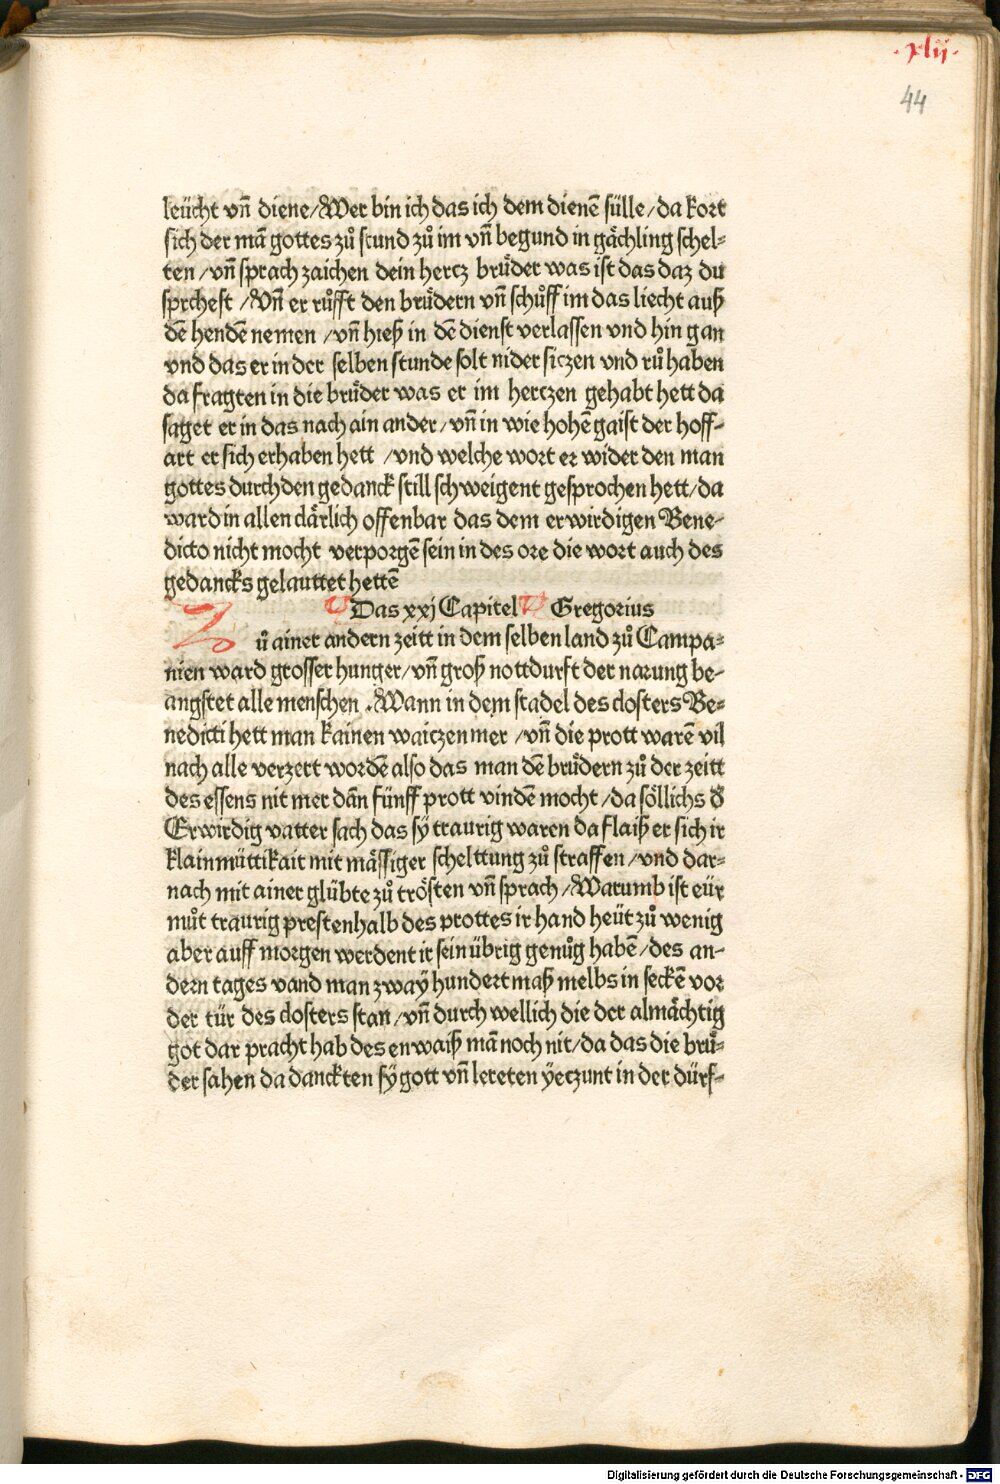 ·xlij·
44
leücht vñ diene/Wer bin ich das ich dem dienē sülle/da kort
sich der mā gottes zů stund zů im vñ begund in gächling schel⸗
ten/vñ sprach zaichen dein hercz brůder was ist das daz du
sprchest/Vñ er růfft den brůdern vñ schůff im das liecht auß
dē hendē nemen/vñ hieß in dē dienst verlassen vnd hin gan
vnd das er in der selben stunde solt nider siczen vnd rů haben
da fragten in die brůder was er im herczen gehabt hett da
saget er in das nach ain ander/vñ in wie hohē gaist der hoff⸗
art er sich erhaben hett/vnd welche wort er wider den man
gottes durch den gedanck still schweigent gesprochen hett/da
ward in allen clärlich offenbar das dem erwirdigen Bene⸗
dicto nicht mocht verporgē sein in des ore die wort auch des
gedancks gelauttet hettē
Das xxj Capitel Gregorius
Zů ainer andern zeitt in dem selben land zů Campa⸗
nien ward grosser hunger/vñ groß nottdurft der narung be⸗
angstet alle menschen .Wann in dem stadel des closters Be⸗
nedicti hett man kainen waiczen mer/vñ die prott warē vil
nach alle verzert wordē also das man dē brůdern zů der zeitt
des essens nit mer dān fünff prott vinden mocht/da söllichs d̕
Erwirdig vatter sach das sÿ traurig waren da flaiß er sich ir
klainmüttikait mit mässiger schelttung zů straffen/vnd dar⸗
nach mit ainer glübte zů trösten vñ sprach/Warumb ist eür
můt traurig prestenhalb des prottes ir hand heüt zů wenig
aber auff morgen werdent ir sein übrig genůg habē/des an⸗
dern tages vand man zwaÿ hundert maß melbs in seckē vor
der tür des closters stan/vñ durch wellich die der almächtig
got dar pracht hab des en waiß mā noch nit/da das die brů⸗
der sahen da danckten sÿ gott vñ lereten ÿeczunt in der dürf⸗
Digitalisierung gefördert durch die Deutsche Forschungsgemeinschaft - DFG